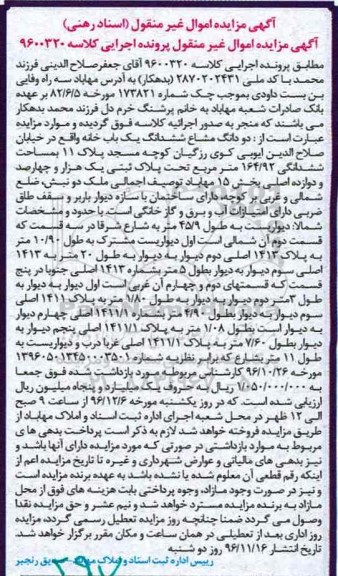 آگهی مزایده اموال غیر منقول (اسناد رهنی)
آگهی مزایده اموال غیر منقول پرونده اجرایی کلاسه ۹۶۰۰۳۲۰
مطابق پرونده اجرایی کلاسه ۹۶۰۰۳۲۰ آقای جعفر صلاح الدینی فرزند
محمد با کد ملی ۲۸۷۰۲۰۲۴۳۱ (بدهکار) به آدرس مهاباد سه راه وفایی
بن بست داودی بموجب چک شماره ۱۷۳۸۲۱ مورخه ۸۲/۶/۵ بر عهده
بانک صادرات شعبه مهاباد به خانم پرشنگ خرم دل فرزند محمد بدهکار
می باشند که منجر به صدور اجرائیه کلاسه فوق گردیده و موارد مزایده
عبارت است از : دو دانگ مشاع ششدانگ یک باب خانه واقع در خیابان
صلاح الدین ایوبی کوی رزگیان کوچه مسجد پلاک ۱۱ بمساحت
ششدانگی ۱۶۴/۹۲ متر مربع تحت پلاک ثبتی یک هزار و چهارصد
و دوازده اصلی بخش ۱۵ مهاباد توصیف اجمالی ملک دو نبش، ضلع
شمالی و غربی بر کوچه دارای ساختمان با سازه دیوار باربر و سقف طاق
ضربی دارای امتیازات آب و برق و گاز خانگی است. با حدود و مشخصات
شمالا: دیواریست به طول ۴۵/۹ متر به شارع شرقا در سه قسمت که
قسمت دوم آن شمالی است اول دیواریست مشترک به طول ۱۰/۹۰ متر
به پلاک ۱۴۱۳ اصلی دوم دیوار به دیوار به طول ۲۰ متر به ۱۴۱۳
اصلی سوم دیوار به دیوار بطول ۵ متر بشماره ۱۴۱۳ اصلی جنوبا در پنج
قسمت که قسمتهای دوم و چهارم آن غربی است اول دیوار به دیوار به
طول ۳ متر دوم دیوار به دیوار به طول ۱/۸۰ متر به پلاک ۱۴۱۱ اصلی
سوم دیوار به دیوار بطول ۴/۹۰ متر بشماره ۱۴۱۱/۱ اصلی چهارم دیوار
به دیوار است بطول ۱/۰۸ متر به پلاک ۱۴۱۱/۱ اصلی پنجم دیوار به
دیوار بطول ۷/۶۰ متر به پلاک ۱۴۱۱/۱ اصلی غربا درب و دیواریست به
طول ۱۱ متر بشارع که برابر نظریه شماره ۱۳۹۶۰۵۰۱۳۴۵۰۰۰۳۵۰۱
مورخه ۹۶/۱۰/۲۶ کارشناس مربوطه مورد بازداشت شده فوق جمعا
به ۱/۰۵۰/۰۰۰/۰۰۰ ریال به حروف یک میلیارد و پنجاه میلیون ریال
ارزیابی شده است. که در روز یکشنبه مورخه ۹۶/۱۲/۶ از ساعت ۹ صبح
الی ۱۲ ظهر در محل شعبه اجرای اداره ثبت اسناد و املاک مهاباد از
طریق مزایده فروخته خواهد شد. لازم به ذکر است پرداخت بدهی های
مربوط به موارد بازداشتی در صورتی که مورد مزایده دارای آنها باشد و
نیز بدهی های مالیاتی و عوارض شهرداری و غیره تا تاریخ مزایده اعم از
اینکه رقم قطعی آن معلوم شده یا نشده باشد به عهده برنده مزایده است
و نیز در صورت وجود مازاد، وجوه پرداختی بابت هزینه های فوق از محل
مازاد به برنده مزایده مسترد خواهد شد و نیم عشر و حق مزایده نقدا
وصول می گردد ضمنا چنانچه روز مزایده تعطیل رسمی گردد، مزایده
روز اداری بعد از تعطیلی در همان ساعت و مکان مقرر برگزار خواهد شد.
تاریخ انتشار ۹۶/۱۱/۱۶ روز دو شنبه
رییس اداره ثبت اسناد و املاک رنجبر